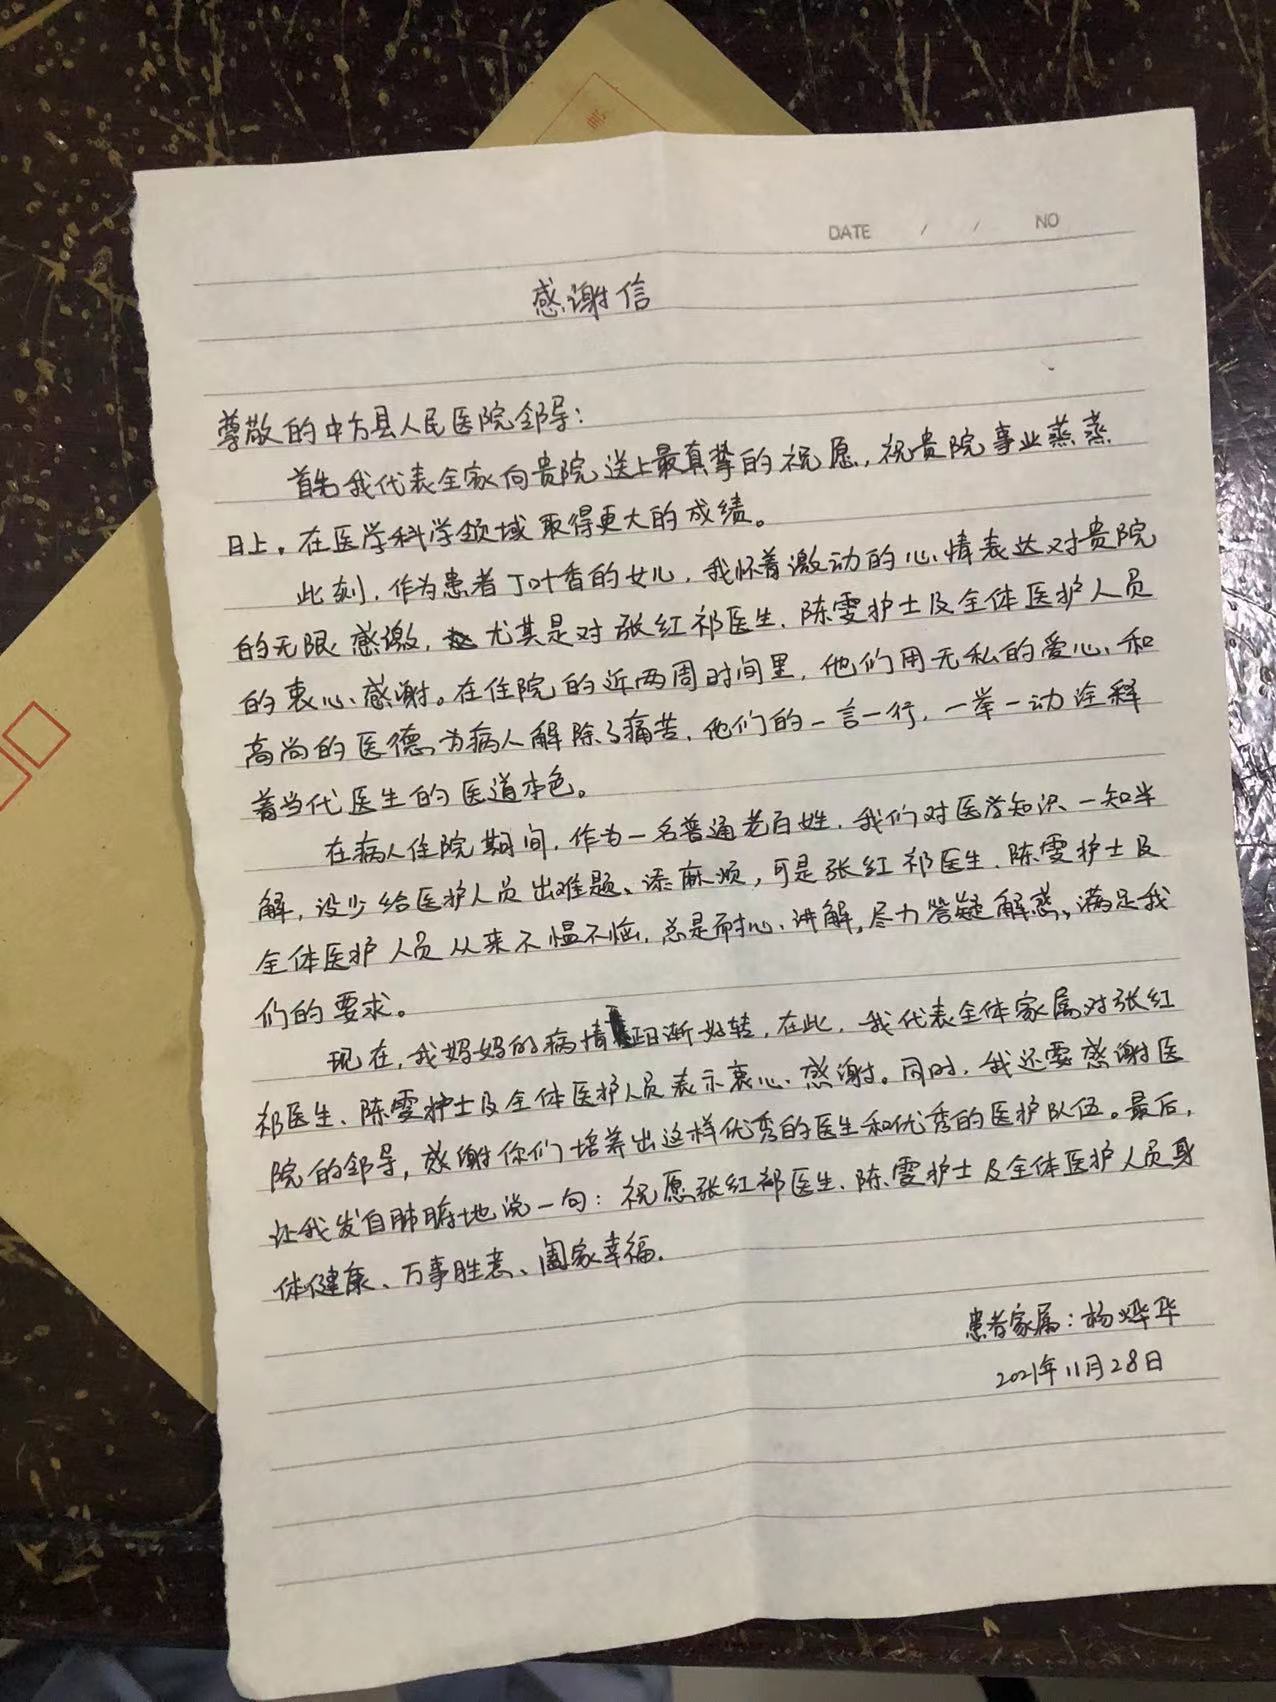 DATE / / NO
感谢信
尊敬的中方县人民医院领导：
首先我代表全家向贵院送上最真挚的祝愿，祝贵院事业蒸蒸
日上。在医学科学领域取得更大的成绩。
此刻，作为患者丁叶香的女儿，我怀着激动的心情表达对贵院
的无限感激，尤其是对张红祁医生、陈雯护士及全体医护人员
的衷心感谢。在住院的近两周时间里，他们用无私的爱心、和
高尚的医德，为病人解除了痛苦，他们的一言一行，一举一动诠释
着当代医生的医道本色。
在病人住院期间，作为一名普通老百姓，我们对医学知识一知半
解，没少给医护人员出难题、添麻烦，可是张红祁医生、陈雯护士及
全体医护人员从来不愠不恼，总是耐心、讲解，尽力答疑解惑，满足我
们的要求。
现在，我妈妈的病情日渐好转，在此，我代表全体家属对张红
祁医生、陈雯护士及全体医护人员表示衷心感谢。同时，我还要感谢医
院的领导，感谢你们培养出这样优秀的医生和优秀的医护队伍。最后，
让我发自肺腑地说一句：祝愿张红祁医生、陈雯护士及全体医护人员身
体健康、万事胜意、阖家幸福.
患者家属：杨烨华
2021年11月28日